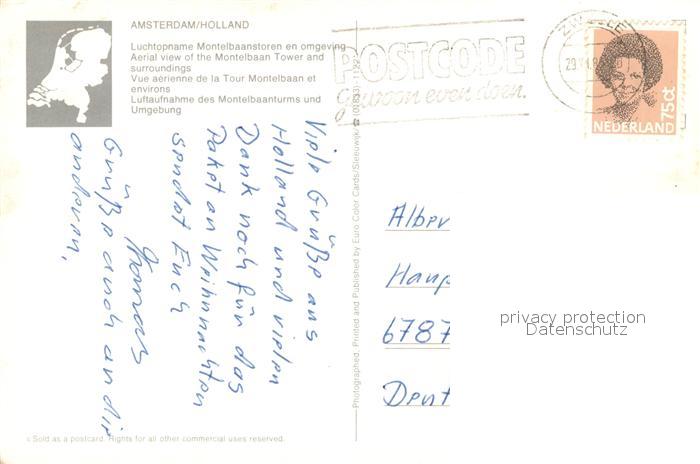 AMSTERDAM/HOLLAND
Luchtopname Montelbaanstoren en omgeving
Aerial view of the Montelbaan Tower and
surroundings
Vue aérienne de la Tour Montelbaan et
environs
Luftaufnahme des Montelbaanturms und
Umgebung
POSTCODE
Gewoon even doen.
ZWOLLE
NEDERLAND
75ct
Viele Grüße aus
Holland und vielen
Dank noch für das
Paket an Weihnachten
sendet Euch
Thomas
Grüße auch an die
anderen.
Photographed, Printed and Published by Euro Color Cards/Sleeuwijk
Alber
Haup
6787
Deut
privacy protection
Datenschutz
Sold as a postcard. Rights for all other commercial uses reserved.